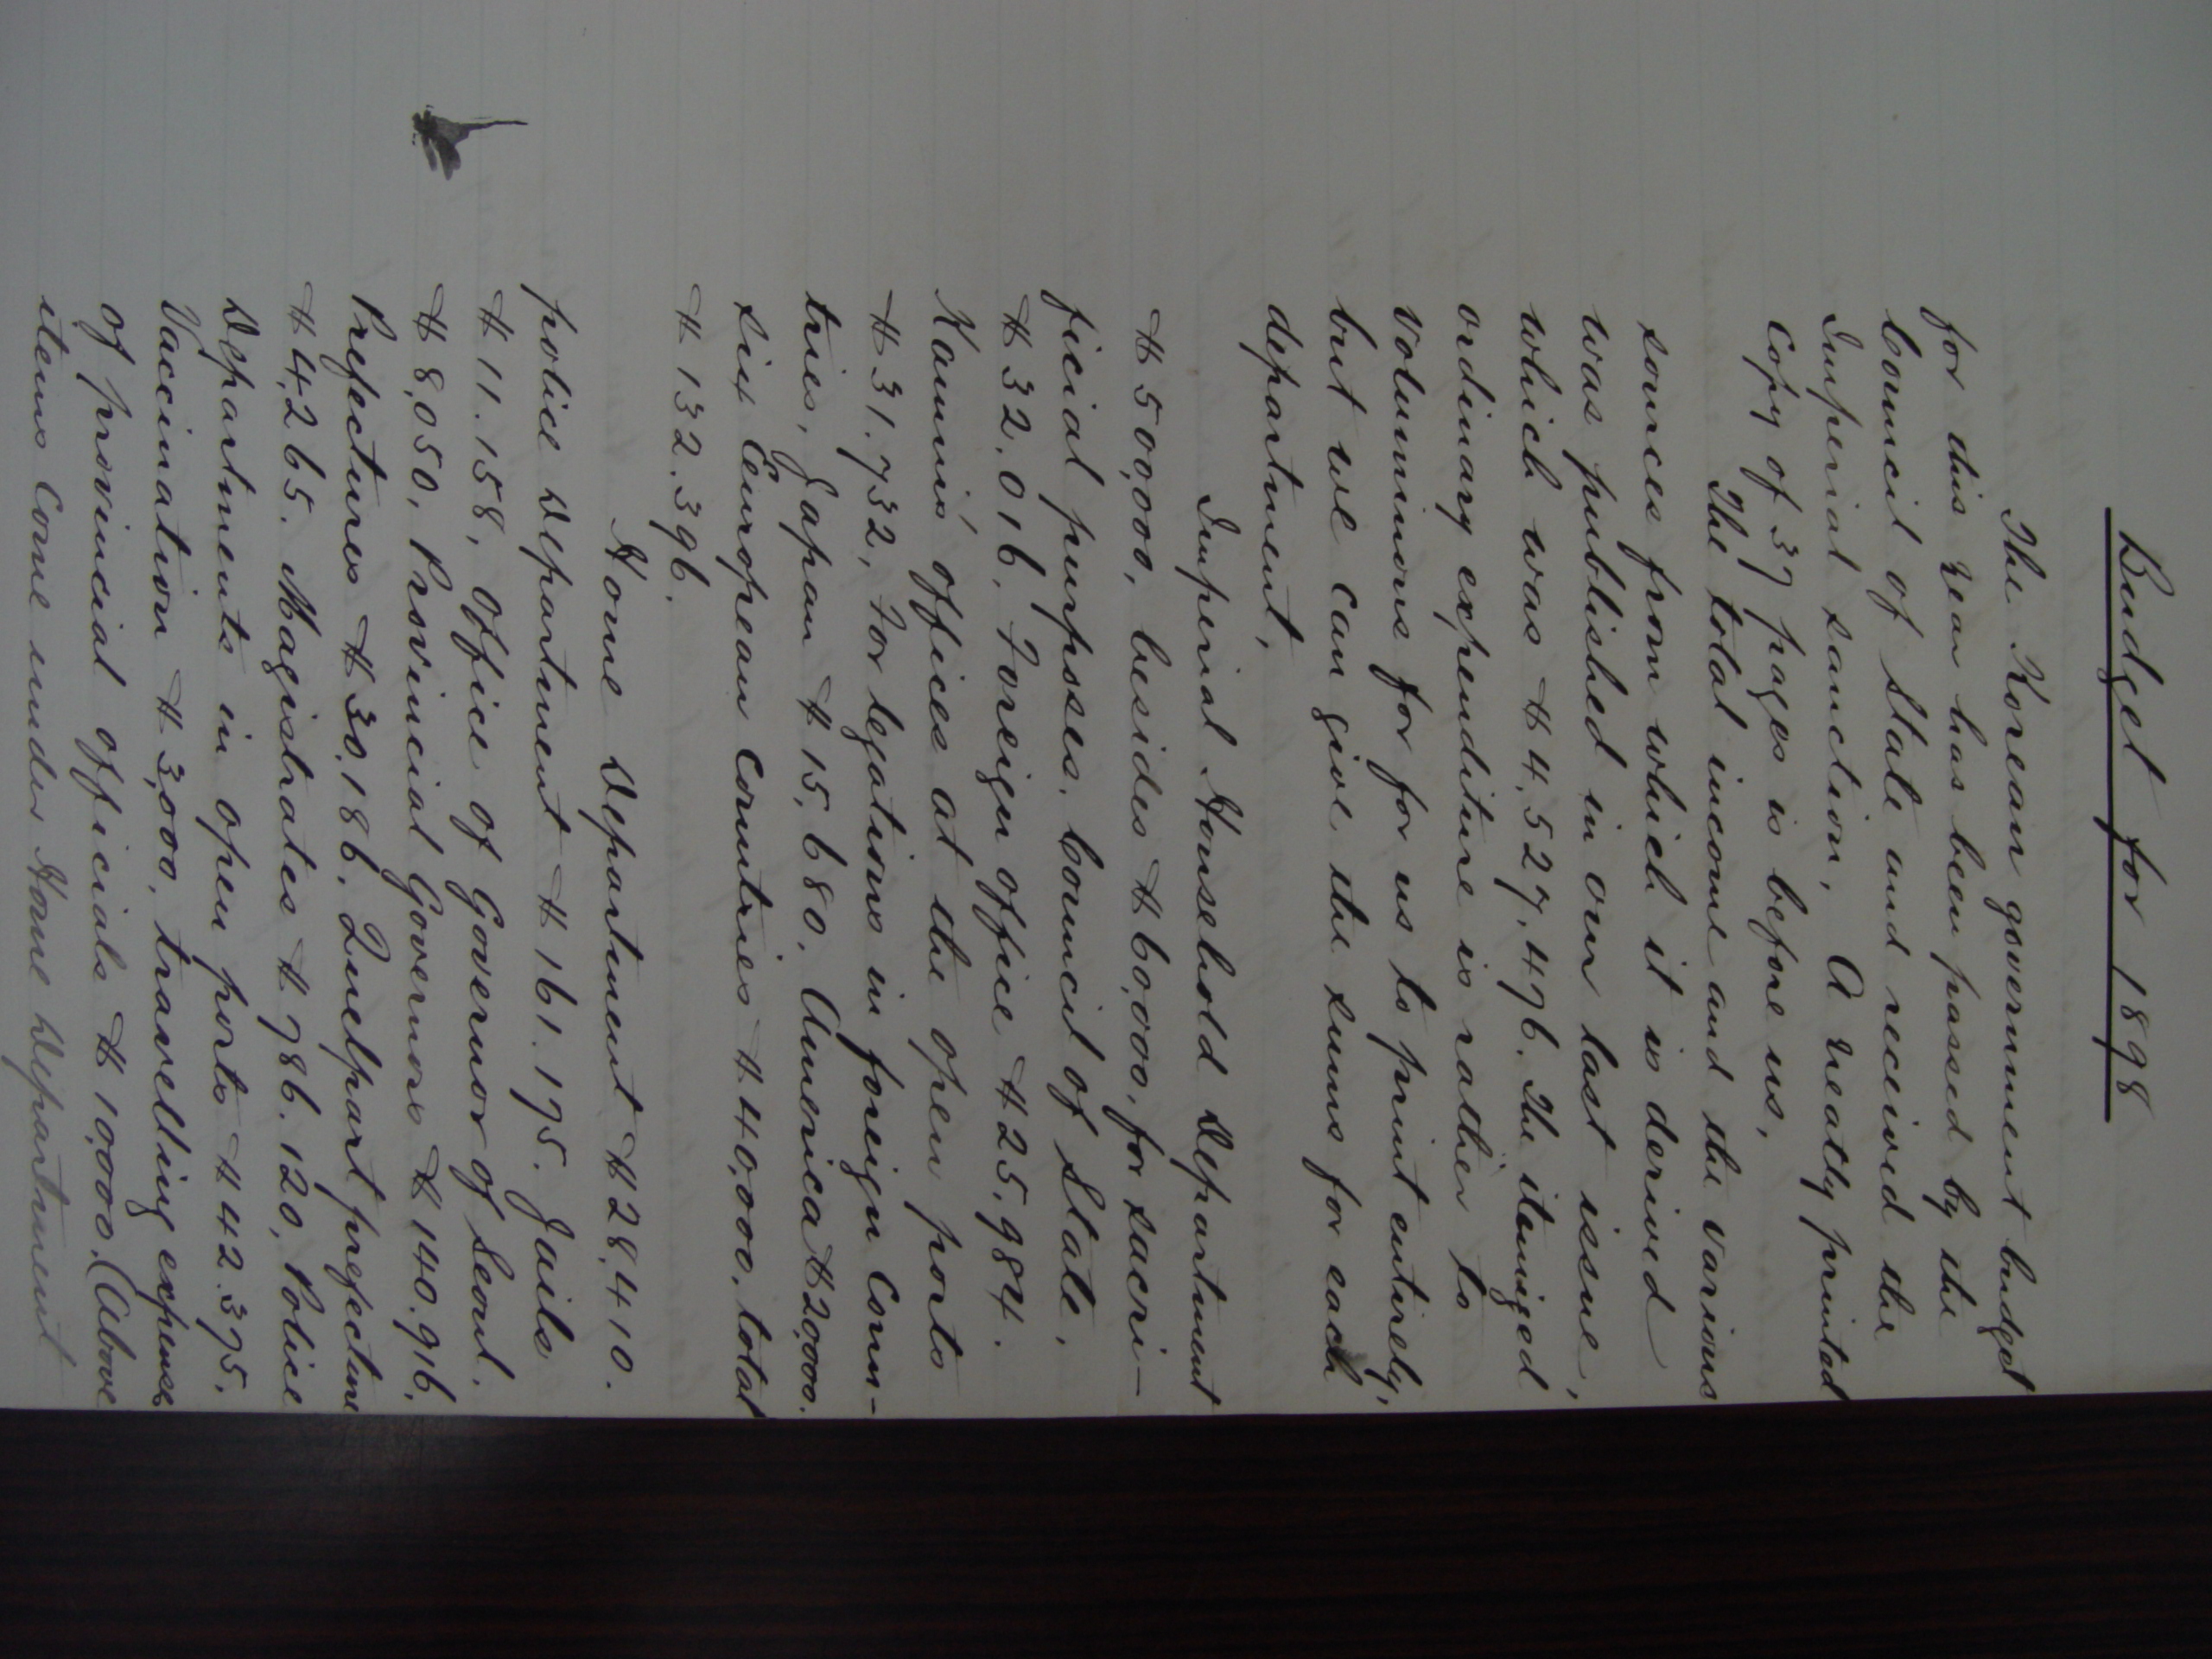 Budget for 1898
The Korean government budget
for this year has been passed by the
Council of State and received the
Imperial sanction. A neatly printed
Copy of 37 pages is before us.
The total income and the various
sources from which it is derived
was published in our last issue,
which was $4,527,476. The itemized
ordinary expenditure is rather to
voluminous for for us to print entirely,
but we can give the sums for each
department.
Imperial Household Department
$500,000, besides $60,000, for sacri-
ficial purposes. Council of State,
$32,016. Foreign office $25,984.
Kamnis' offices at the open ports
$31.732, For legations in foreign Coun-
tries, Japan $15,680. America $20,000.
six European Countries $40,000. total
$132.396.
Home Department $28,410.
police Department $161.175. Jails
$11.158, office of Governor of Seoul.
$8,050, Provincial Governors $140.916.
Prefectures $30,186. Quelpart prefecture
$4,265. Magistrates $786.120, Police
Departments in open ports $42.375.
Vaccination $3,000, travelling expense
of provincial officials $10,000. (Above
items Come under Home Department